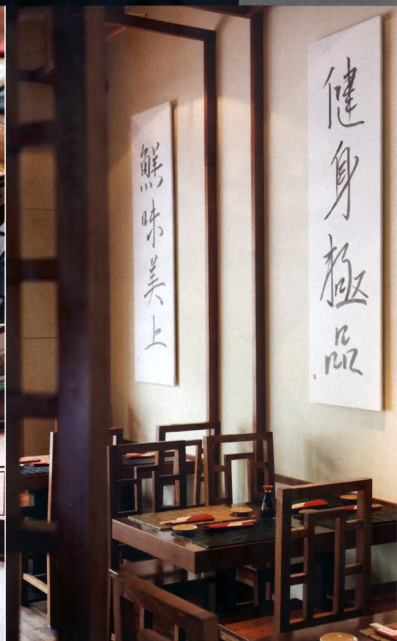 健身極品
鮮味美上